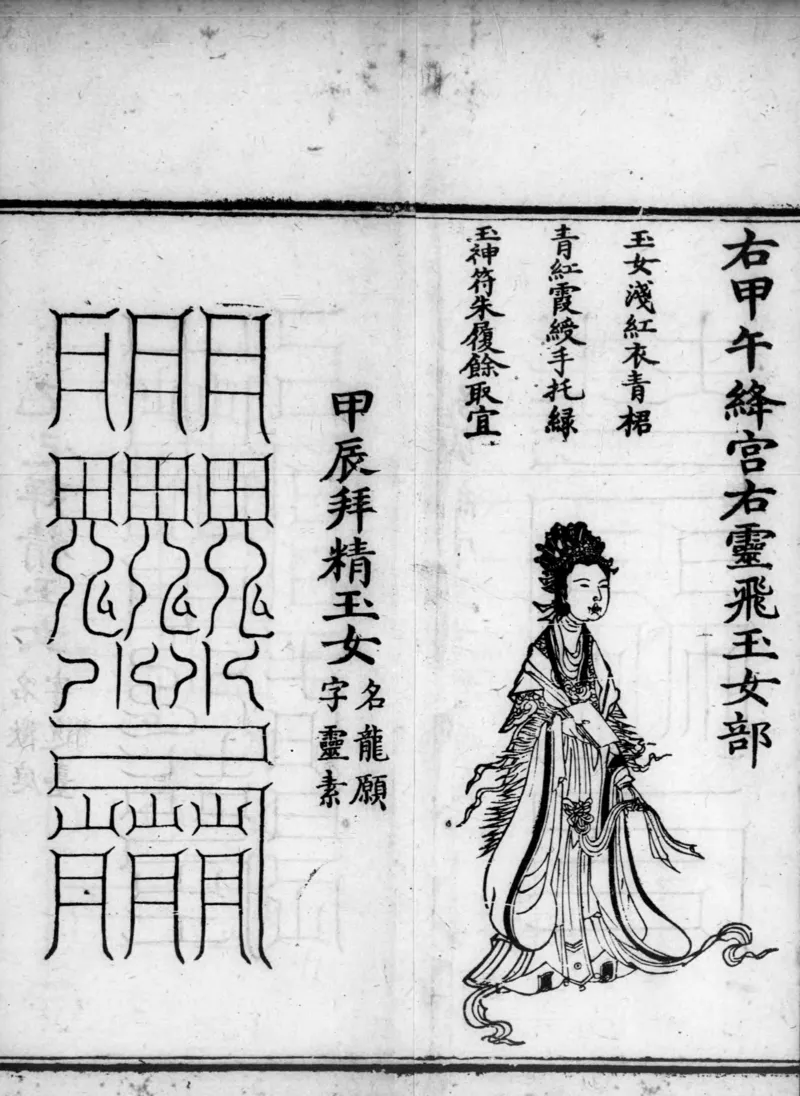 右甲午絳宮右靈飛玉女部
玉女淺紅衣青裙
青紅霞綬手托綠
玉神符朱履餘取宜
甲辰拜精玉女
名龍願
字靈素